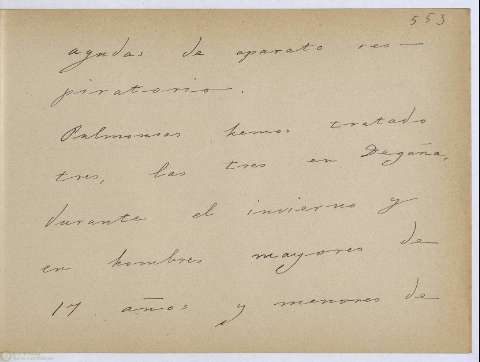 553
agudas de aparato res-
piratorio.
Pulmonías hemos tratado
tres, las tres en Degaña,
durante el invierno y
en hombres mayores de
17 años y menores de